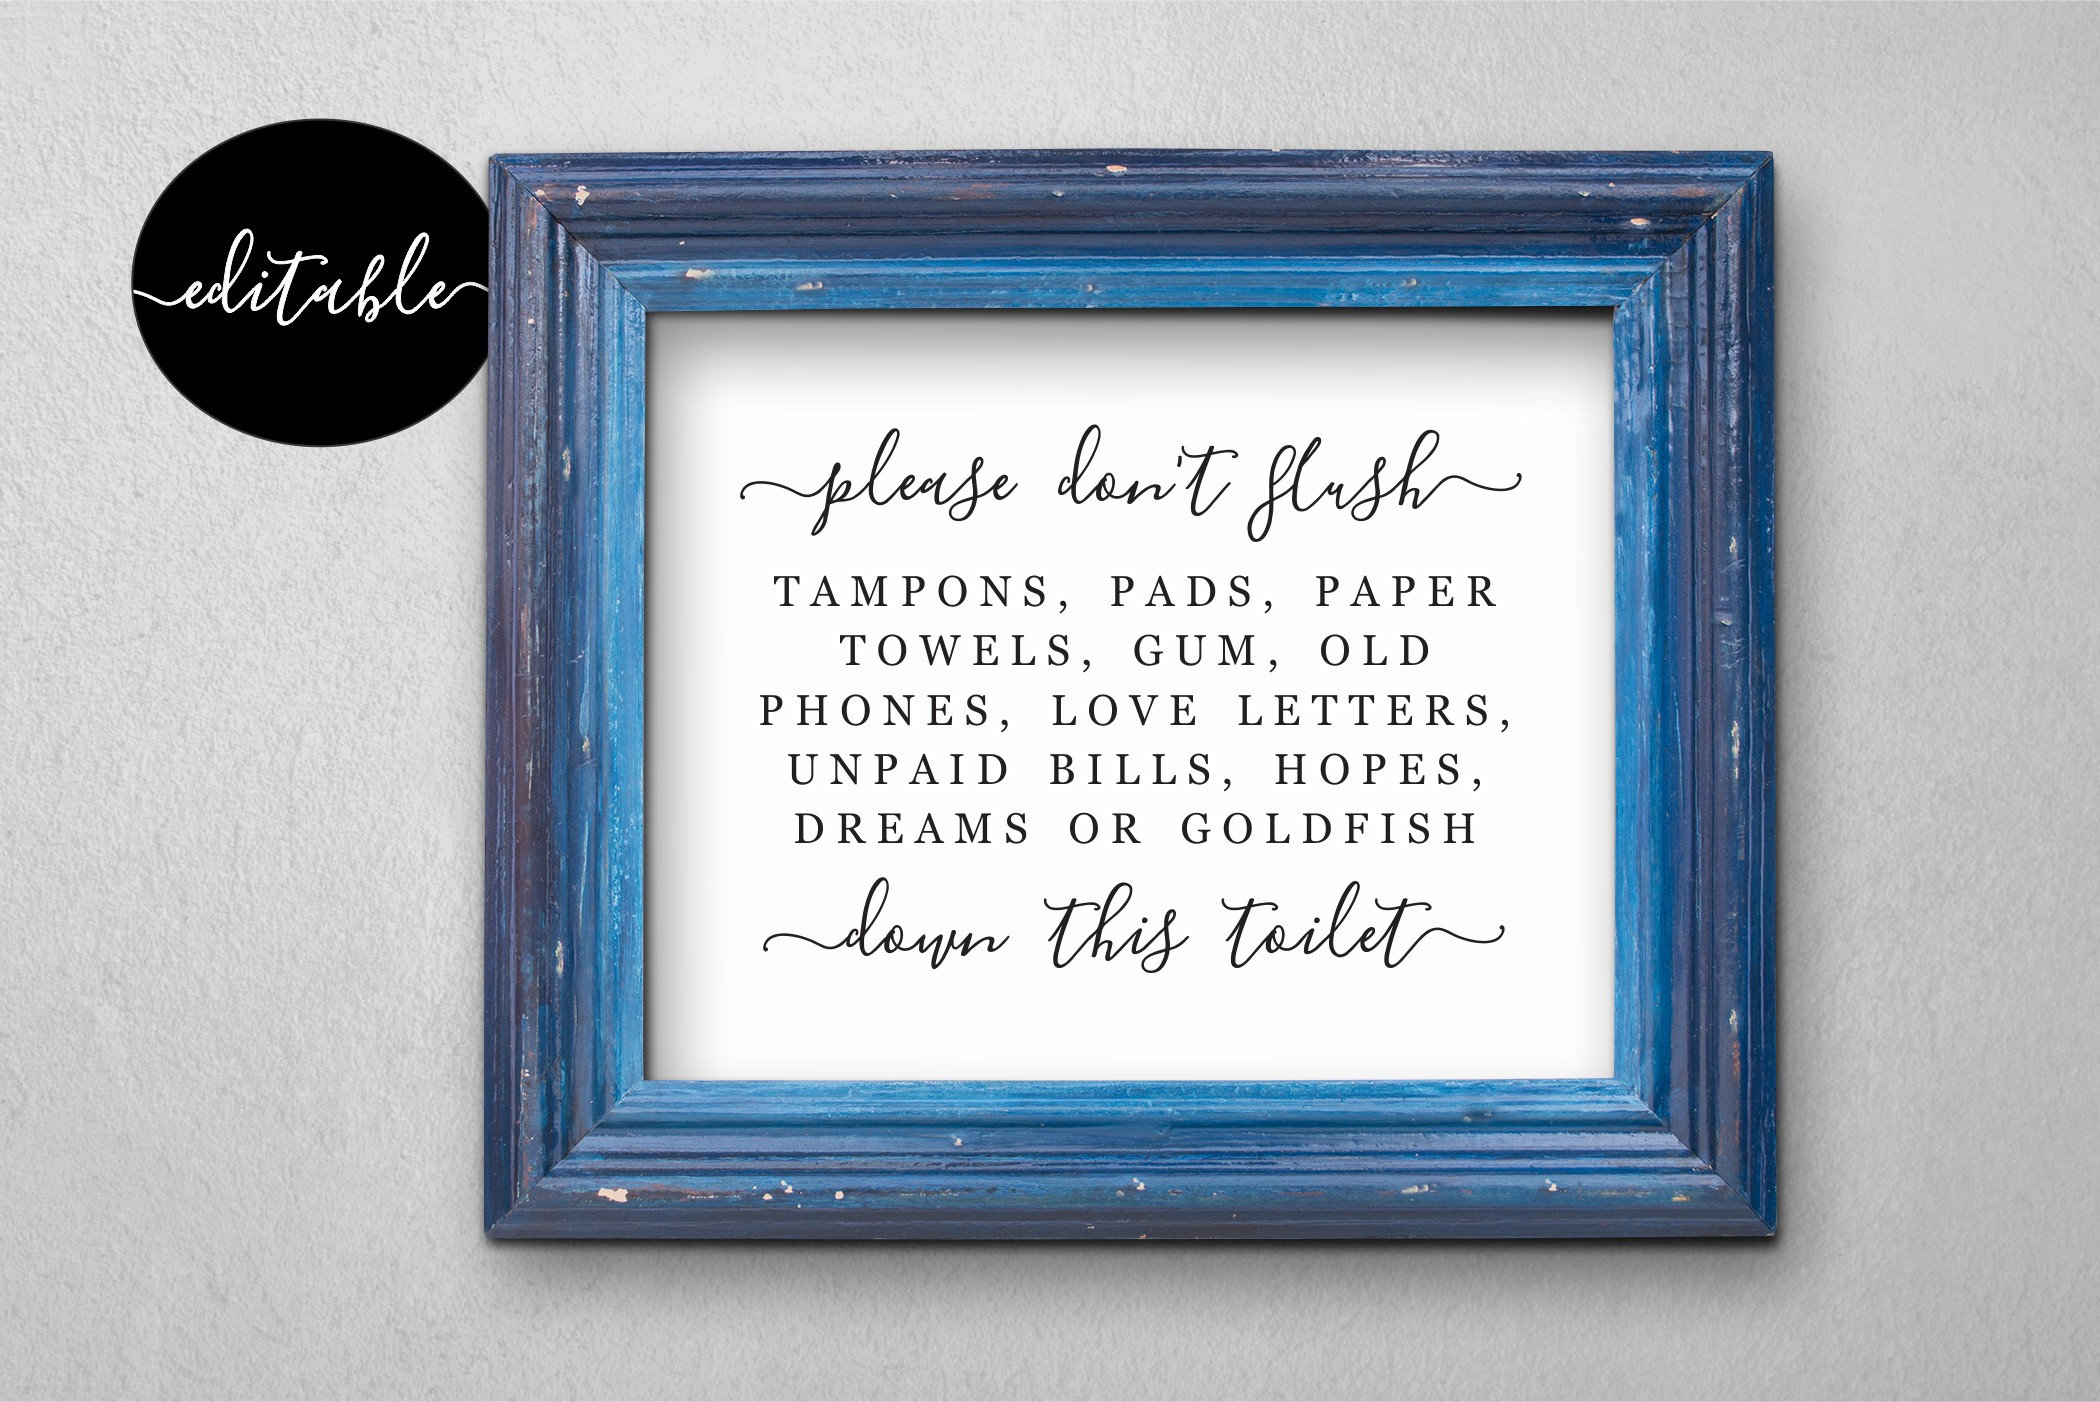 editable
please don't flush
TAMPONS, PADS, PAPER
TOWELS, GUM, OLD
PHONES, LOVE LETTERS,
UNPAID BILLS, HOPES,
DREAMS OR GOLDFISH
down this toilet